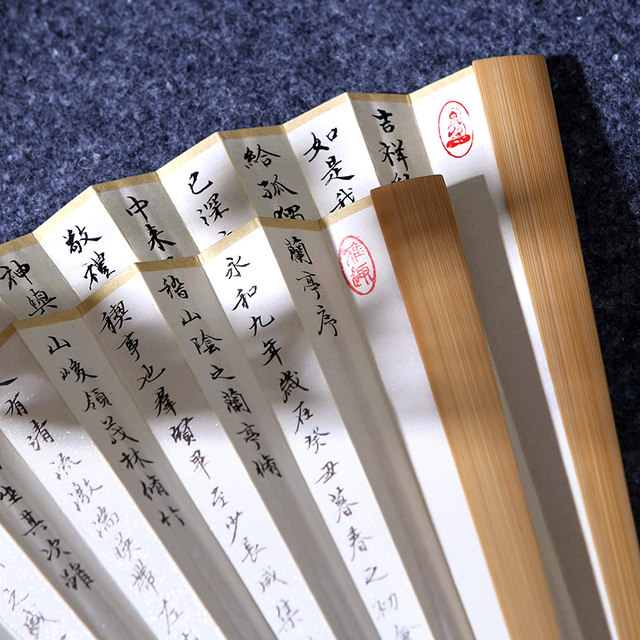 吉祥
如是我
給孤獨
已深
中来
敬禮
神與
蘭亭序
永和九年歲在癸丑暮春之初會
稽山陰之蘭亭脩
禊事也羣賢畢至少長咸集
山峻領茂林脩竹
有清流激湍映帶左
坐其次雖
之盛